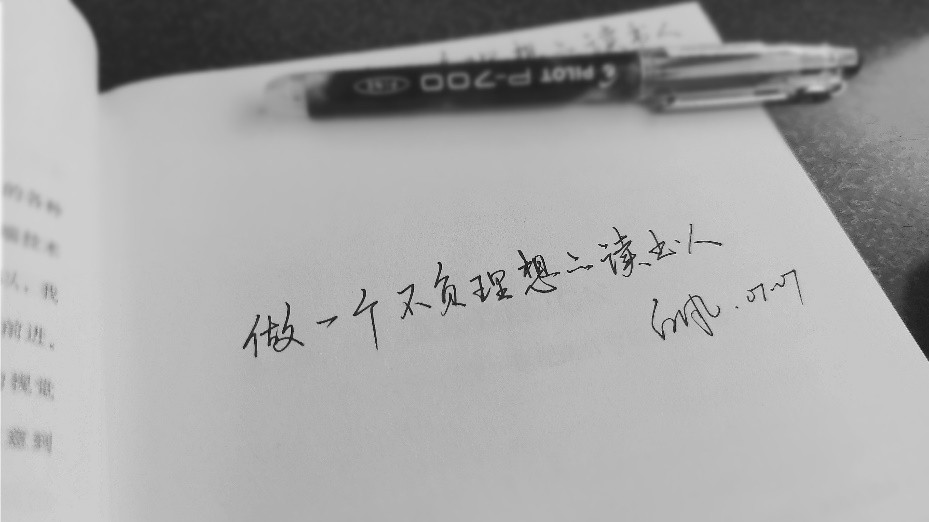 PILOT P-700
的各种
技术
我
前进,
视觉
意到
做一个不负理想之读书人
07.07